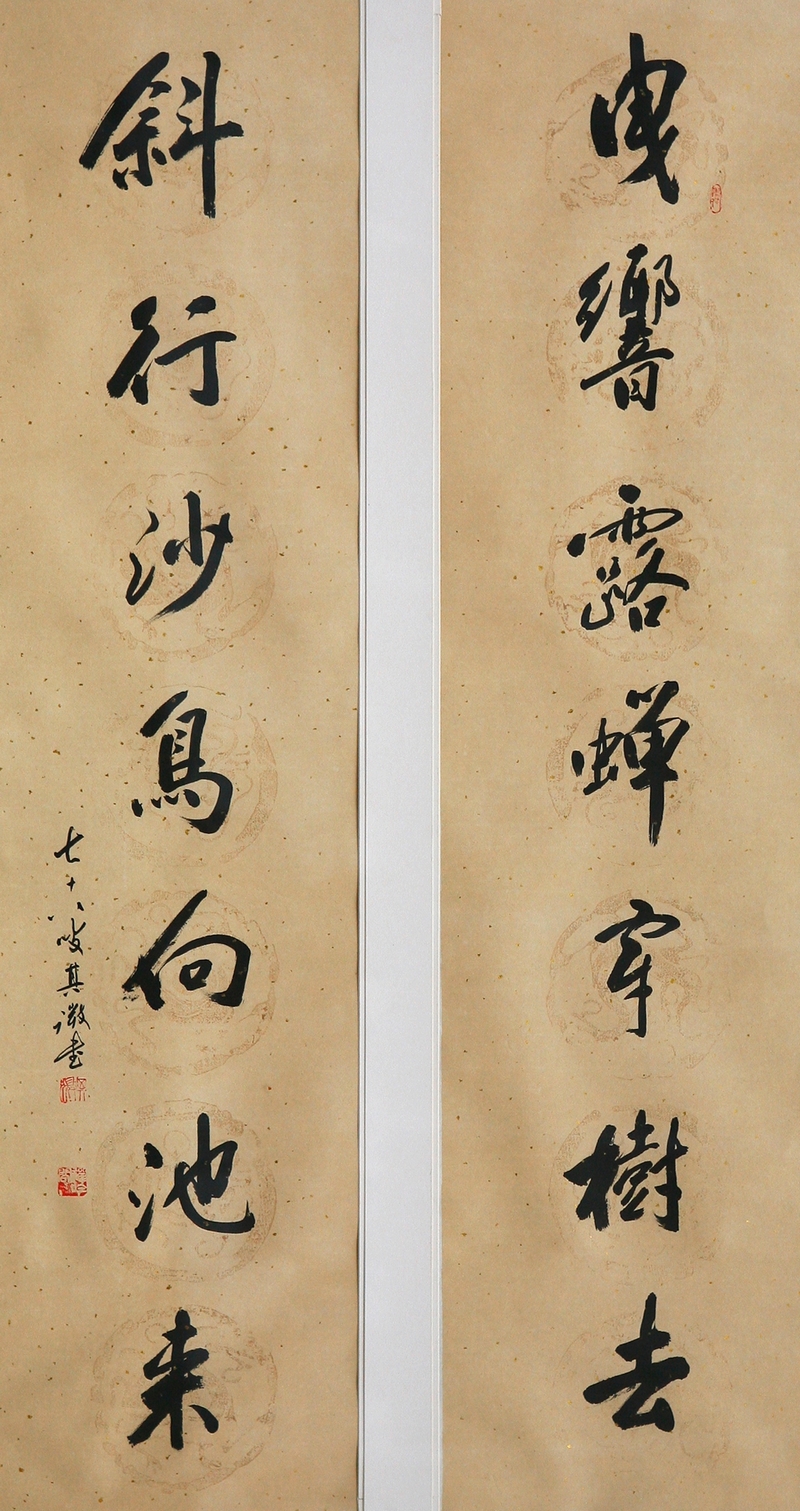 曳響露蟬穿樹去
斜行沙鳥向池來
七十八叟其微書